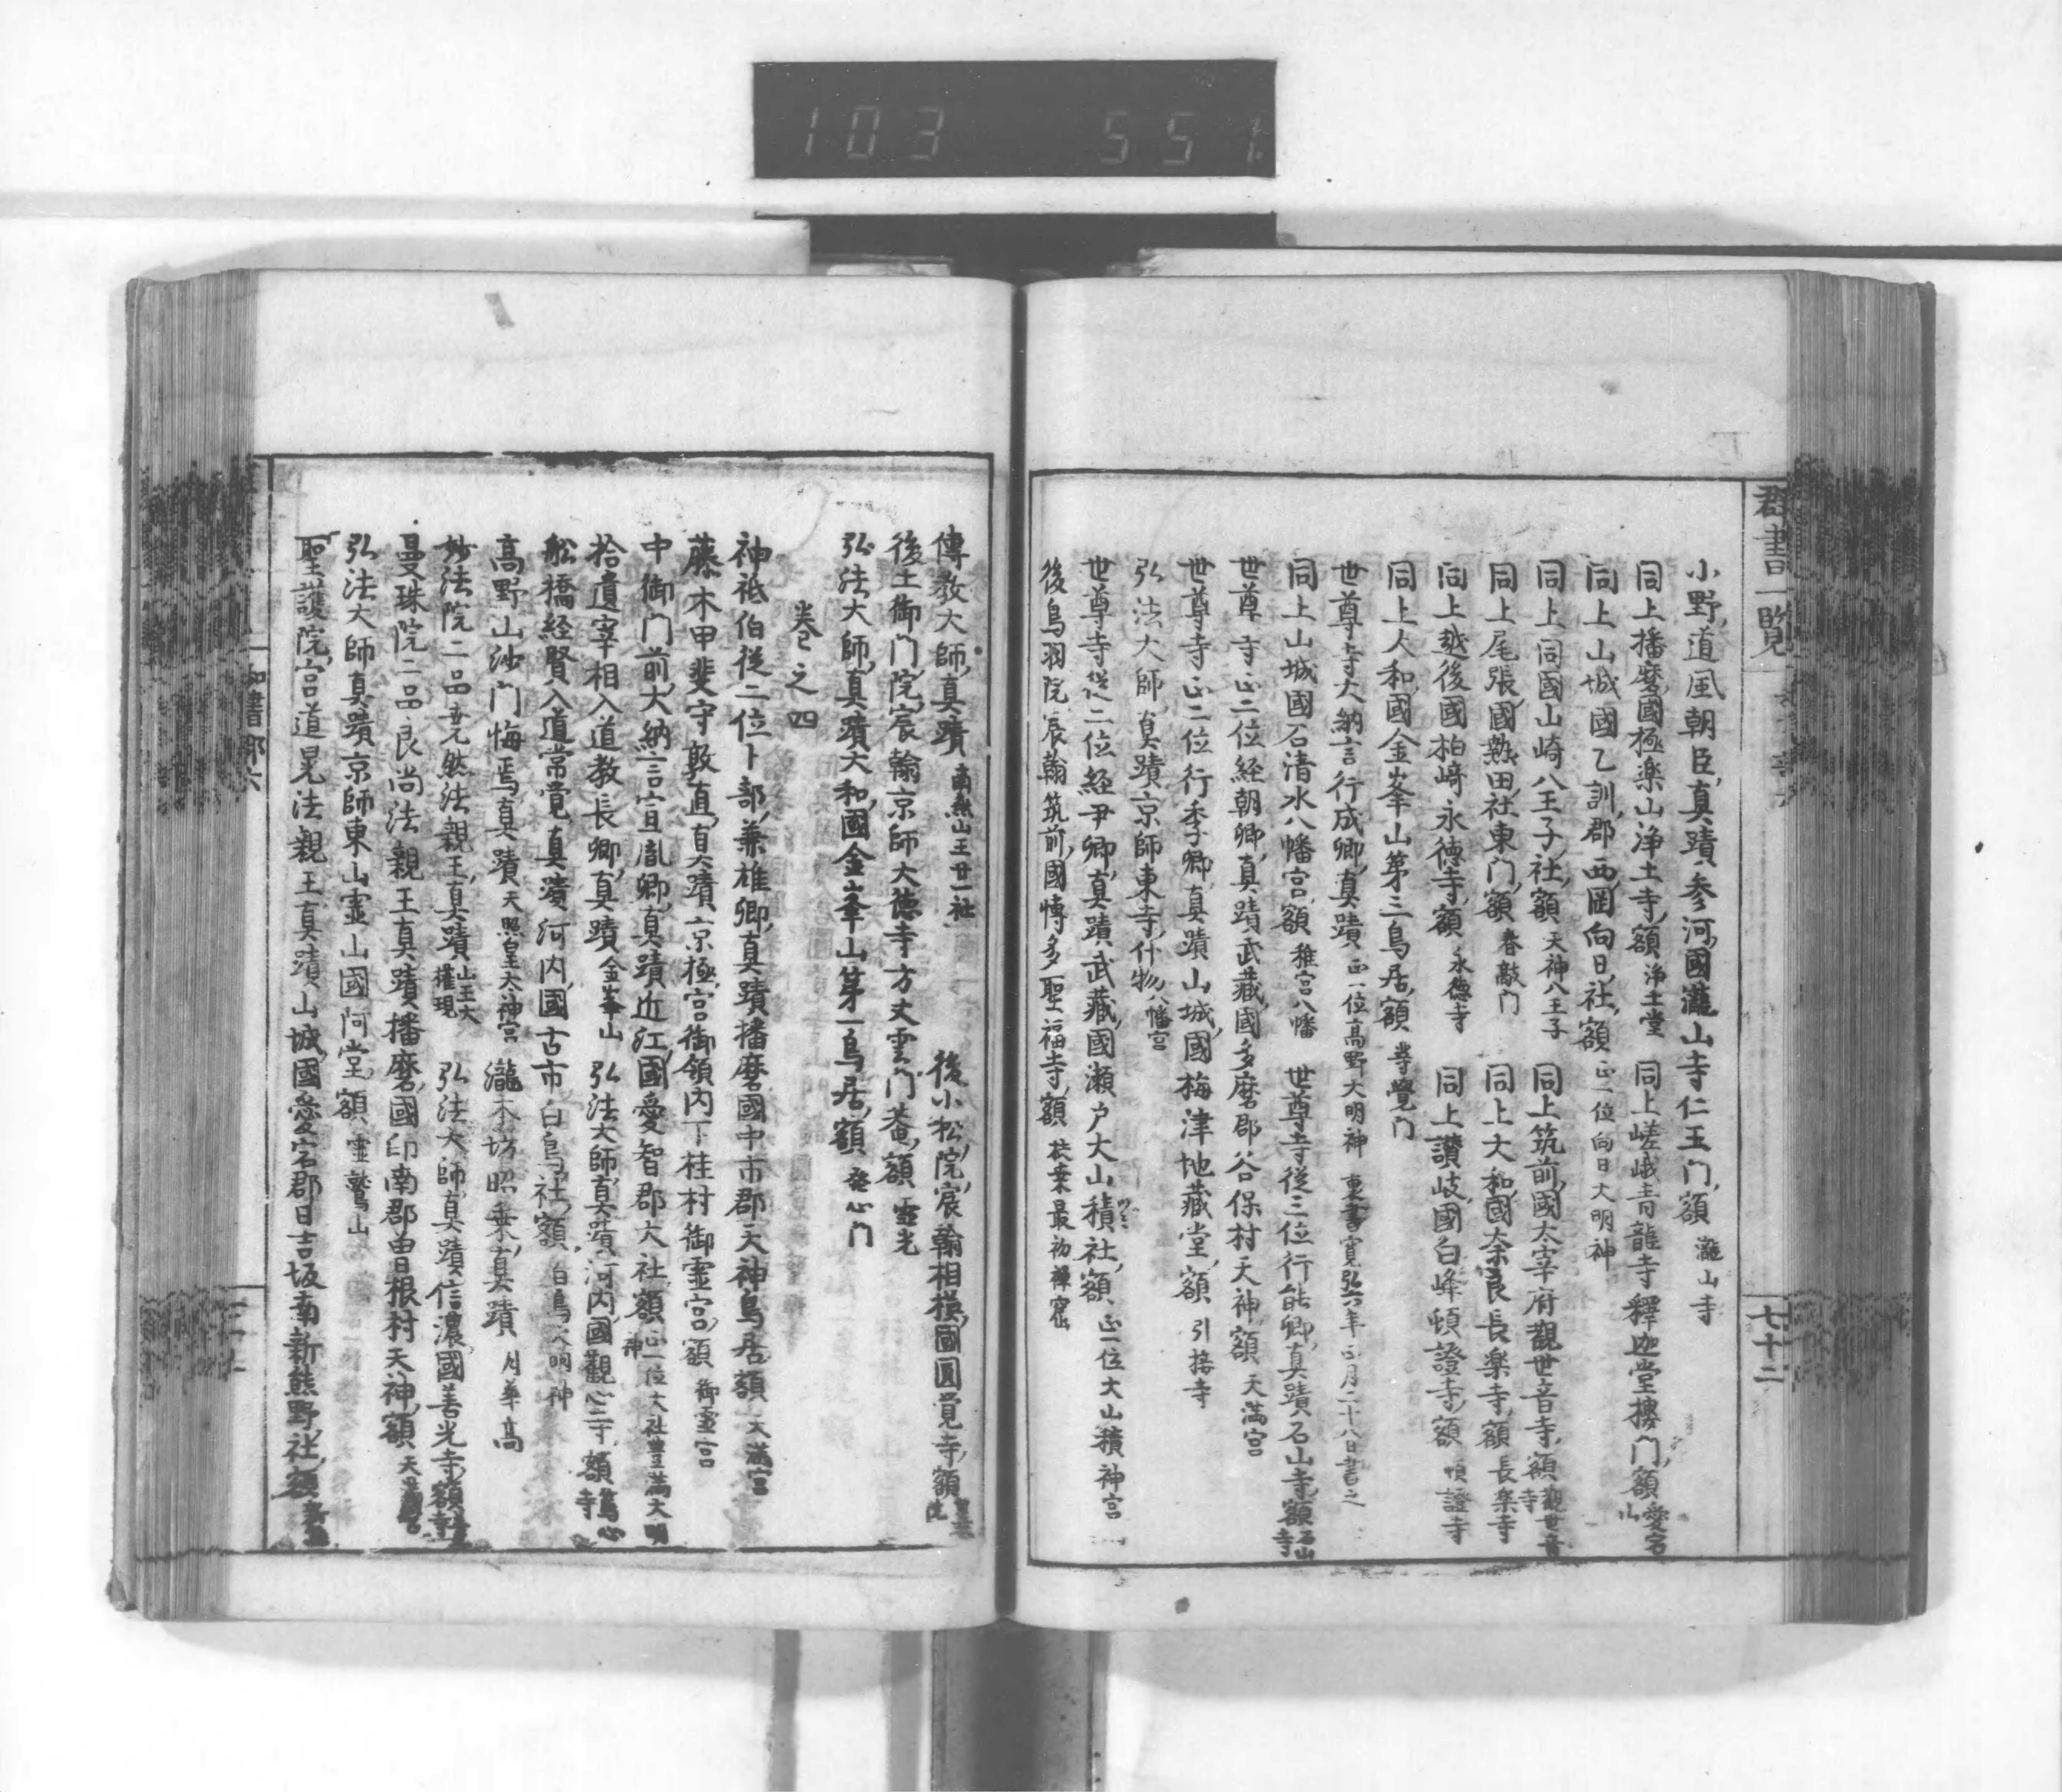 103 551
群書一覧
七十二
小野道風朝臣真蹟参河國瀧山寺仁王门額 瀧山寺
同上播磨國極楽山浄土寺額 浄土堂 同上嵯峨青龍寺釋迦堂樓门額 愛宕山
同上山城國乙訓郡西岡向日社額 正一位向日大明神
同上同國山崎八王子社額 天神八王子 同上筑前國太宰府觀世音寺額 觀世音寺
同上尾張國熱田社東门額 春敲门 同上大和國奈良長楽寺額 長楽寺
同上越後國柏﨑永德寺額 永德寺 同上讃岐國白峰頓證寺額 頓證寺
同上大和國金峯山第三鳥居額 等覺门
世尊寺大納言行成卿真蹟 正一位高野大明神 裏書寛弘六年正月二十八日書之
同上山城國石清水八幡宮額 稚宮八幡 世尊寺従三位行能卿真蹟石山寺額 石山寺
世尊寺正二位経朝卿真蹟武藏國多磨郡谷保村天神額 天満宮
世尊寺正二位行季卿真蹟山城國梅津地藏堂額 引接寺
弘法大師真蹟京師東寺什物 八幡宮
世尊寺従二位経尹卿真蹟武藏國瀬户大山積社額 正一位大山積神宮
後鳥羽院宸翰筑前國博多聖福寺額 扶桒最初禅窟
傳教大師真蹟 山王廿一社 後小松院宸翰相模國圓覚寺額
後土御门院宸翰京師大德寺方丈雲门菴額 靈光
弘法大師真蹟大和國金峯山第一鳥居額 発心门
巻之四
神祇伯従二位卜部兼雄卿真蹟播磨國中市郡天神鳥居額 天満宮
藤木甲斐守敦直真蹟京極宮御領内下桂村御霊宮額 御霊宮
中御门前大納言宣胤卿真蹟近江國愛智郡大社額 正一位大社豊満大明神
拾遺宰相入道教長卿真蹟 金峯山 弘法大師真蹟河内國觀心寺額
舩橋経賢入道常覚真蹟河内國古市白鳥社額 白鳥大明神
高野山沙门悔焉真蹟 天照皇大神宮 瀧本坊昭乗真蹟 月華髙
妙法院二品尭然法親王真蹟 山王大權現 弘法大師真蹟信濃國善光寺額
曼珠院二品良尚法親王真蹟播磨國印南郡曽根村天神額 天満宮
弘法大師真蹟京師東山霊山國阿堂額 霊鷲山
聖護院宮道晃法親王真蹟山城國愛宕郡日吉坂南新熊野社額
和書部六